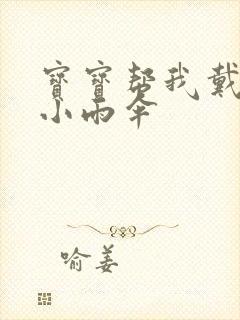 寶寶帮我戴
小雨伞
喻姜